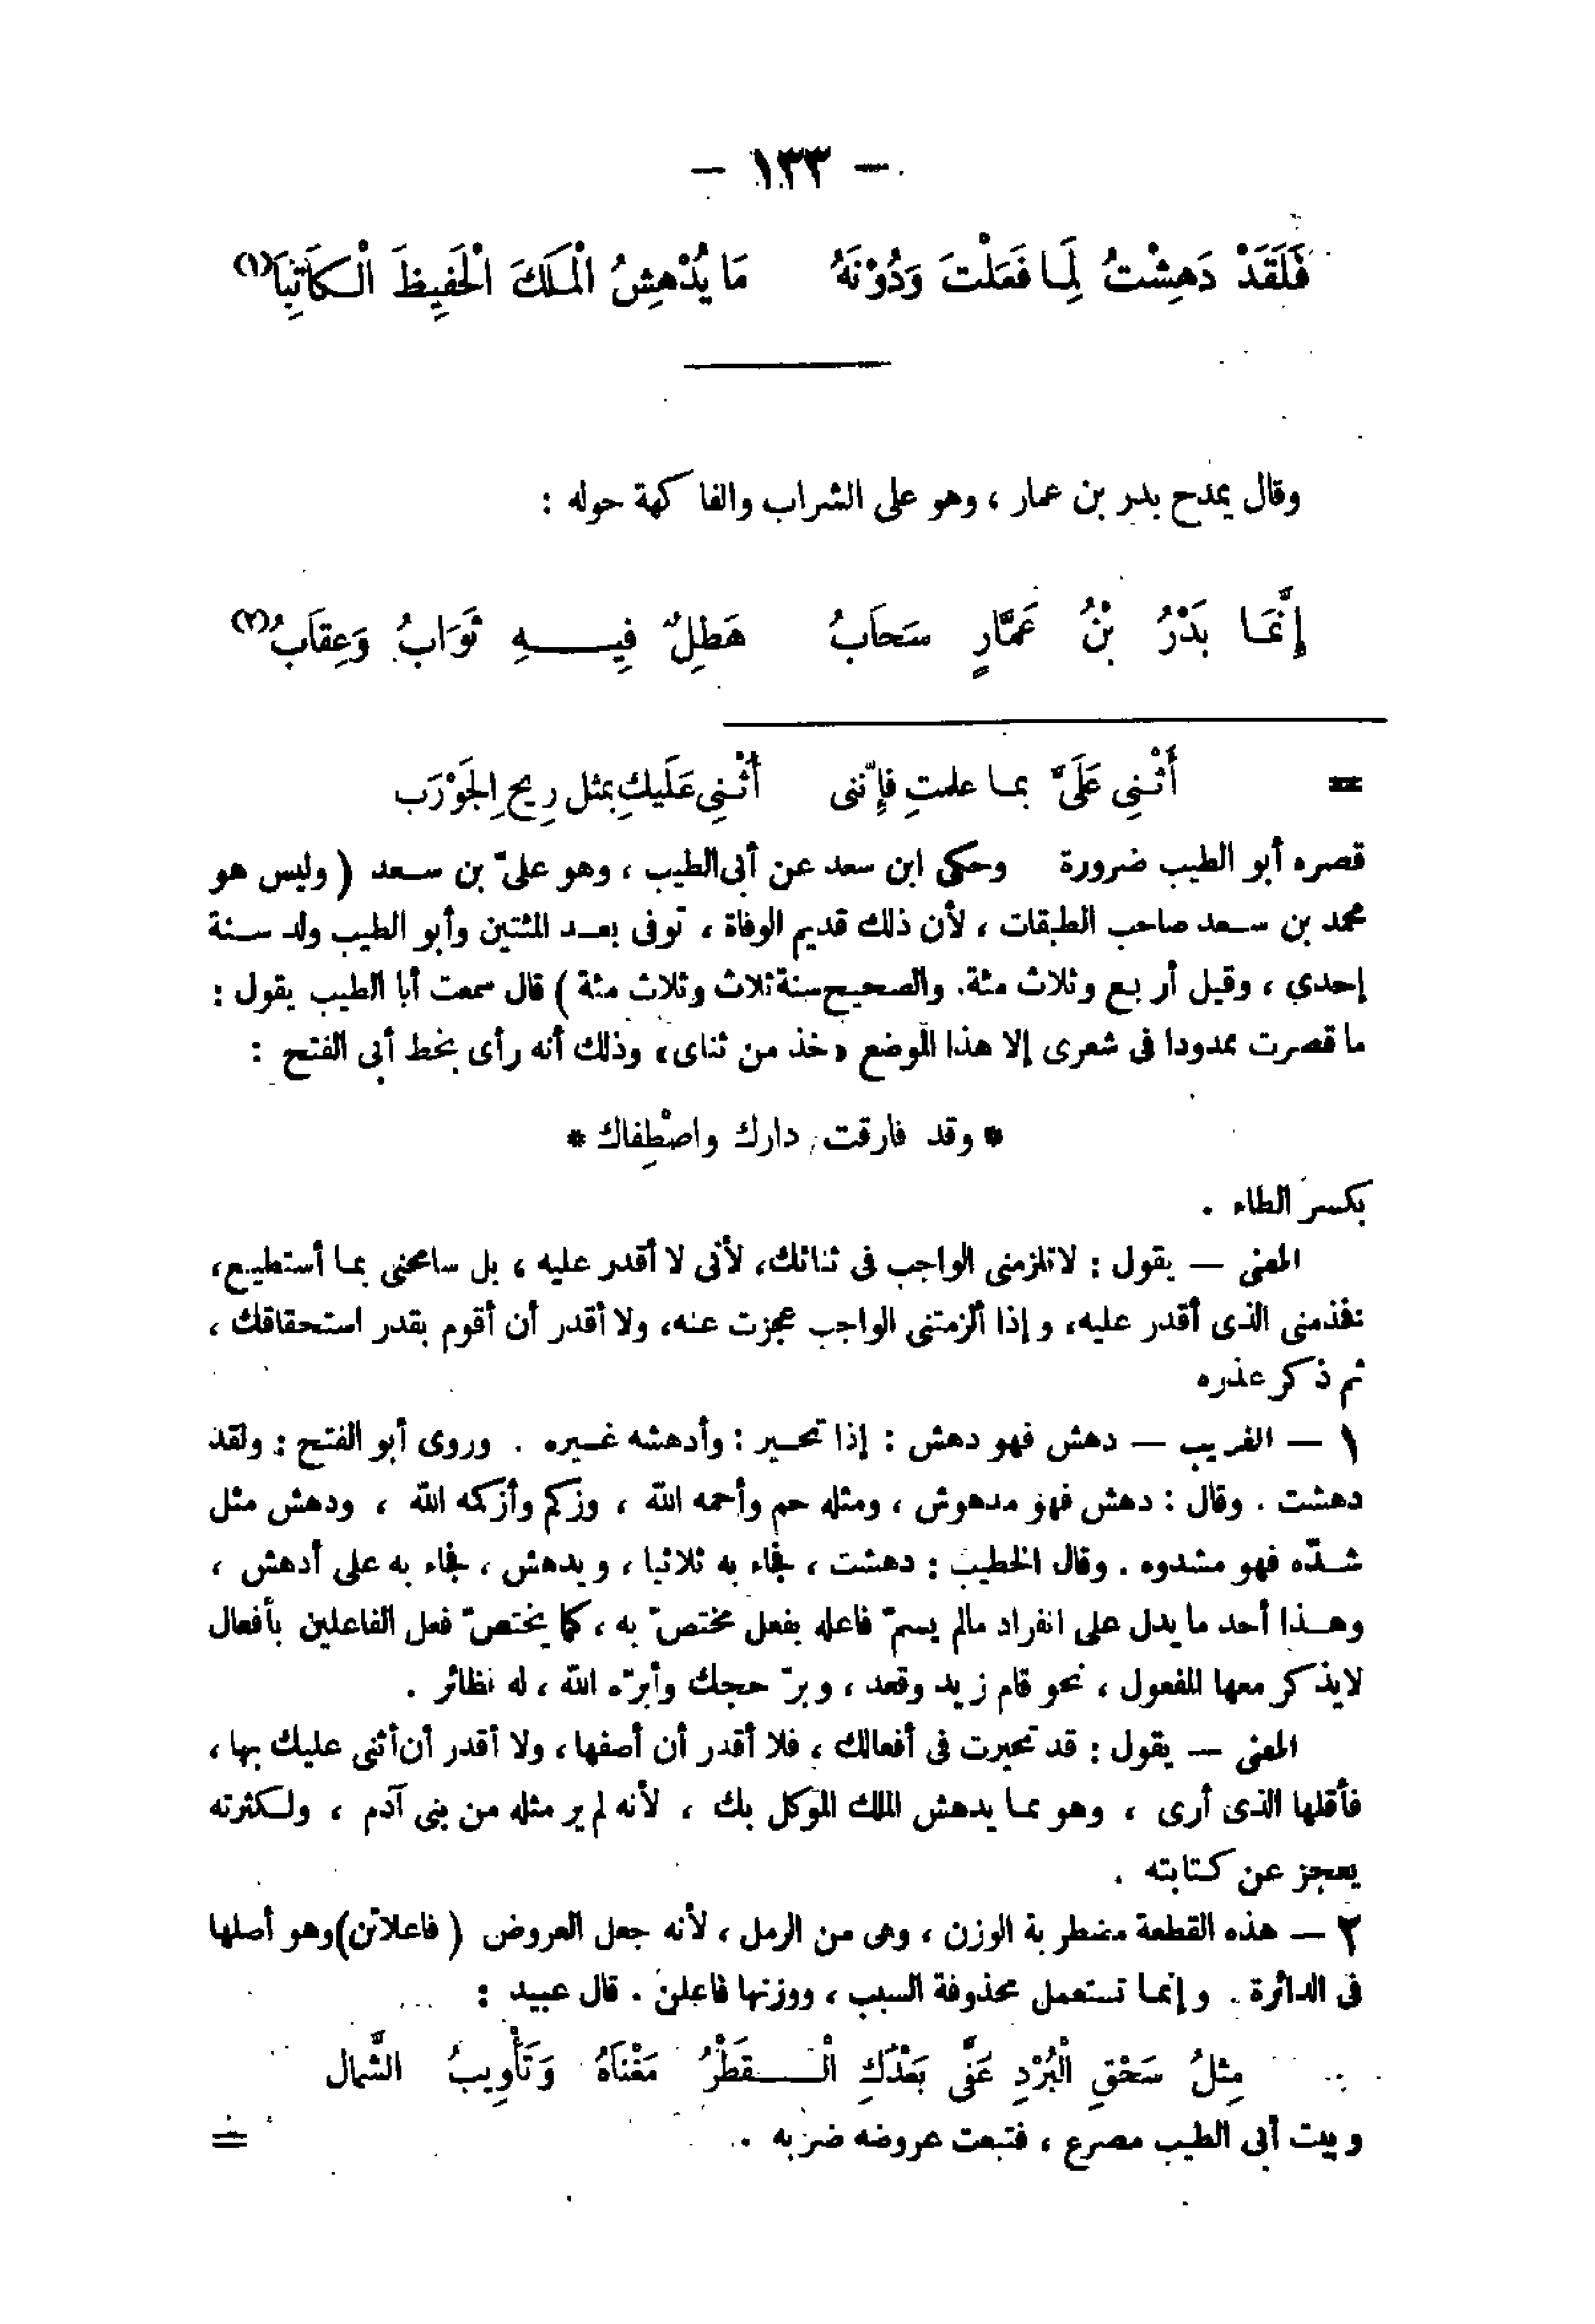 - ١٣٣ -
فَلَقَدْ دَهِشْتُ لِمَا فَعَلْتَ وَدُوْنَهُ مَا يُدْهِشُ الْمَلَكَ الْحَفِيظَ الْكَاتِبَا(١)
وقال يمدح بدر بن عمار ، وهو على الشراب والفاكهة حوله :
إِنَّمَا بَدْرُ بْنُ عَمَّارٍ سَحَابُ هَطِلٌ فِيهِ ثَوَابُ وَعِقَابُ(٢)
= أَثْنِي عَلَىَّ بما علمتِ فإِنّنى أُثْنِي عَلَيكِ بمثل رِيحِ الجَوْرَب
قصره أبو الطيب ضرورة وحكى ابن سعد عن أبى الطيب ، وهو علىّ بن سعد ( وليس هو
محمد بن سعد صاحب الطبقات ، لأن ذلك قديم الوفاة ، توفى بعد المئتين وأبو الطيب ولد سنة
إحدي ، وقيل أربع وثلاث مئة. والصحيح سنة ثلاث وثلاث مئة ) قال سمعت أبا الطيب يقول :
ما قصرت ممدودا فى شعرى إلا هذا الموضع «خذ من ثناى» وذلك أنه رأى بخط أبى الفتح :
* وقد فارقت دارك واصْطِفاك *
بكسر الطاء .
المعنى — يقول : لا تلزمنى الواجب فى ثنائك، لأنى لا أقدر عليه ، بل سامحنى بما أستطيع،
نخذمنى الذى أقدر عليه، وإذا ألزمتنى الواجب عجزت عنه، ولا أقدر أن أقوم بقدر استحقاقك ،
ثم ذكر عذره
١ — الغريب — دهش فهو دهش : إذا تحير : وأدهشه غيره . وروى أبو الفتح : ولقد
دهشت . وقال : دهش فهو مدهوش ، ومثله حم وأحمه الله ، وزكم وأزكمه الله ، ودهش مثل
شدّه فهو مشدوه . وقال الخطيب : دهشت ، فجاء به ثلاثيا ، ويدهش ، فجاء به على أدهش ،
وهذا أحد ما يدل على انفراد مالم يسمّ فاعله بفعل مختصّ به ، كما يختصّ فعل الفاعلين بأفعال
لايذكر معها المفعول ، نحو قام زيد وقعد ، وبرّ حجك وأبرّه الله ، له نظائر .
المعنى — يقول : قد تحيرت فى أفعالك ، فلا أقدر أن أصفها ، ولا أقدر أن أثنى عليك بها ،
فأقلها الذى أرى ، وهو مما يدهش الملك الموكل بك ، لأنه لم ير مثله من بنى آدم ، ولكثرته
يعجز عن كتابته .
٢ — هذه القطعة مضطربة الوزن ، وهى من الرمل ، لأنه جعل العروض ( فاعلاتن) وهو أصلها
فى الدائرة . وإنما تستعمل محذوفة السبب ، ووزنها فاعلن . قال عبيد :
مِثْلُ سَحْقِ الْبُرْدِ عَفَّى بَعْدَكِ الْقَطْرُ مَغْنَاهُ وَتَأْوِيبُ الشَّمال
وبيت أبى الطيب مصرع ، فتبعت عروضه ضربه . =